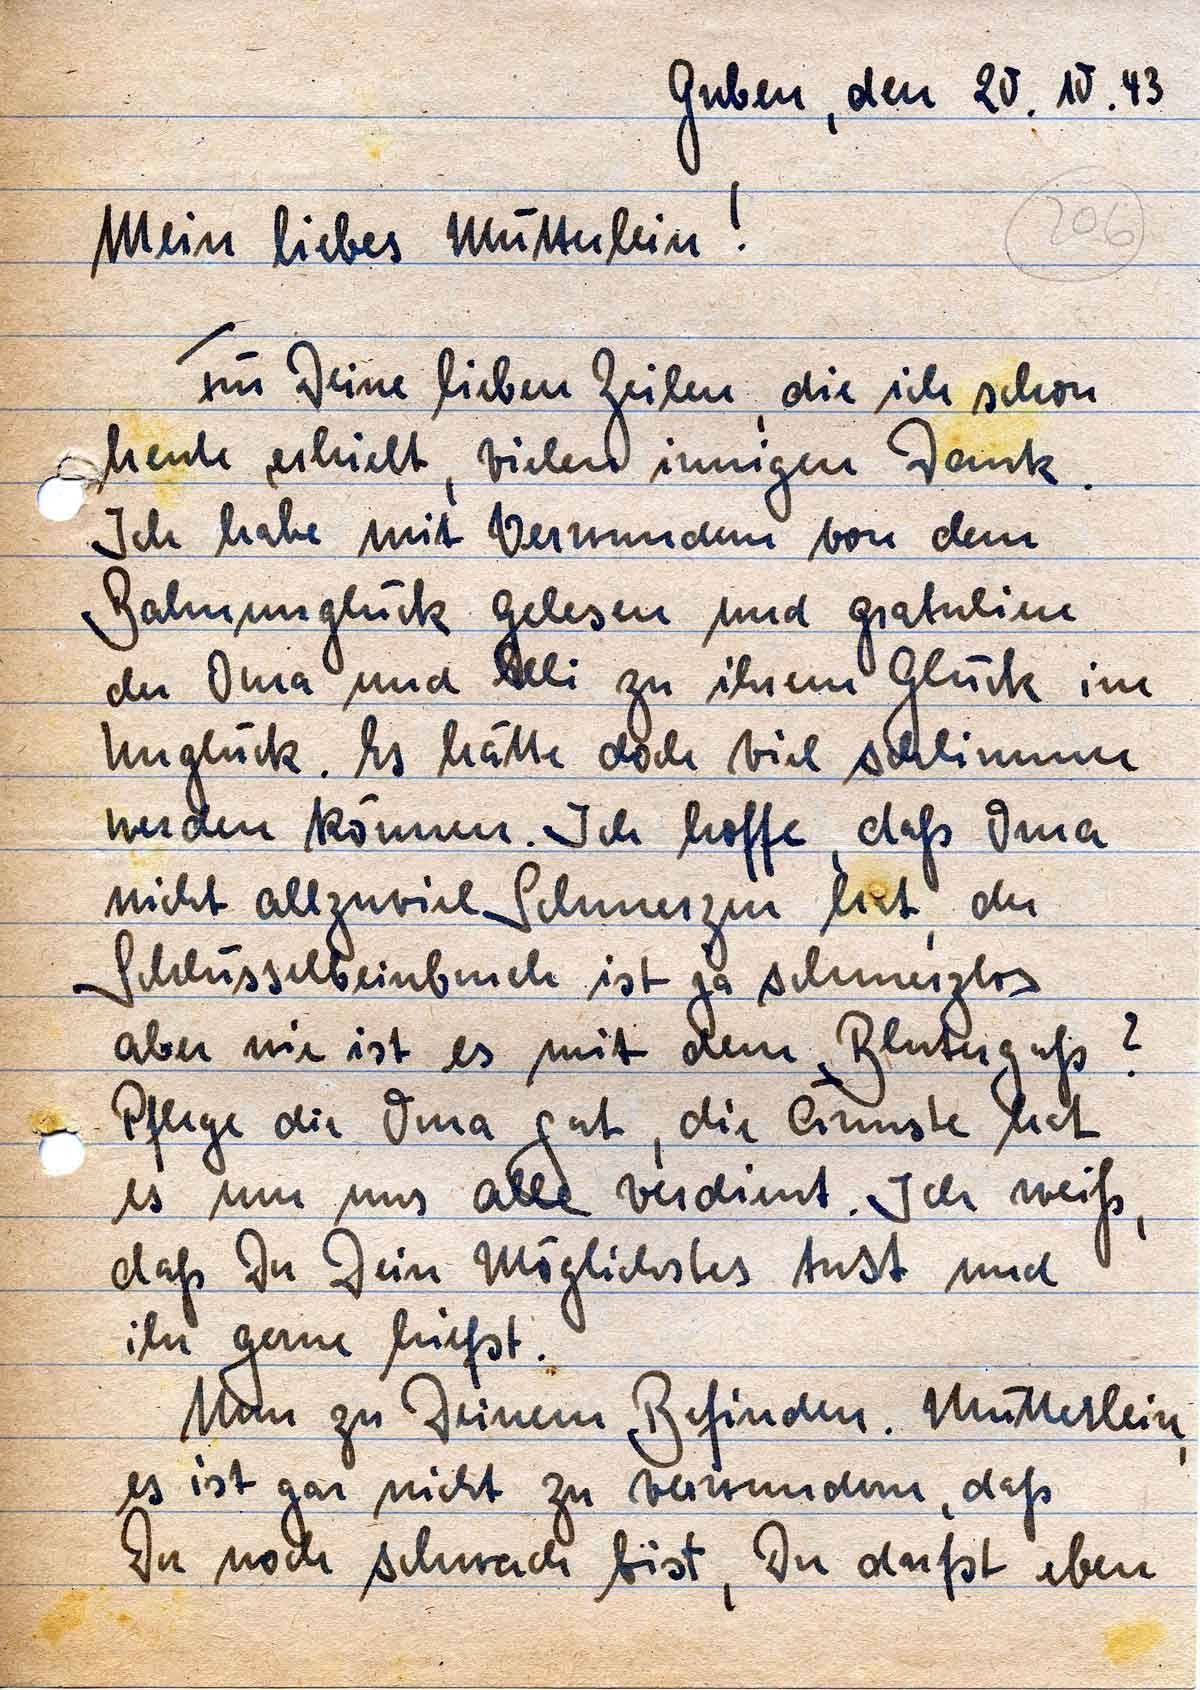 Guben, den 20. 10. 43
206
Mein liebes Mütterlein!
Für Deine lieben Zeilen, die ich schon
heute erhielt, vielen innigen Dank.
Ich habe mit Verwundern von dem
Bahnunglück gelesen und gratuliere
der Oma und zu ihrem Glück im
Unglück. Es hätte doch viel schlimmer
werden können. Ich hoffe, daß Oma
nicht allzuviel Schmerzen hat, der
Schlüsselbeinbruch ist ja schmerzlos
aber wie ist es mit dem Bluterguß?
Pflege die Oma gut, die Ärmste hat
es um uns alle verdient. Ich weiß,
daß Du Dein Möglichstes tust und
ihr gerne hilfst.
Nun zu Deinem Befinden. Mütterlein,
es ist gar nicht zu verwundern, daß
Du noch schwach bist, Du darfst eben